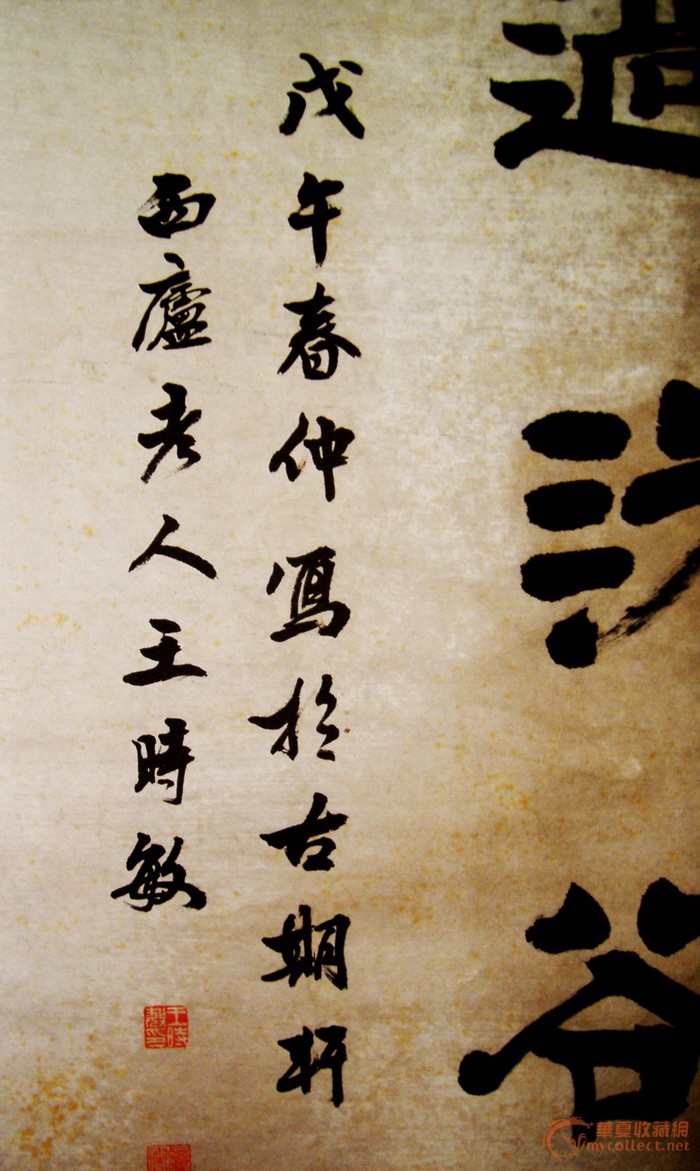 谷
戊午春仲寫於古期軒
西廬老人王時敏
華夏收藏網
mycollect.net